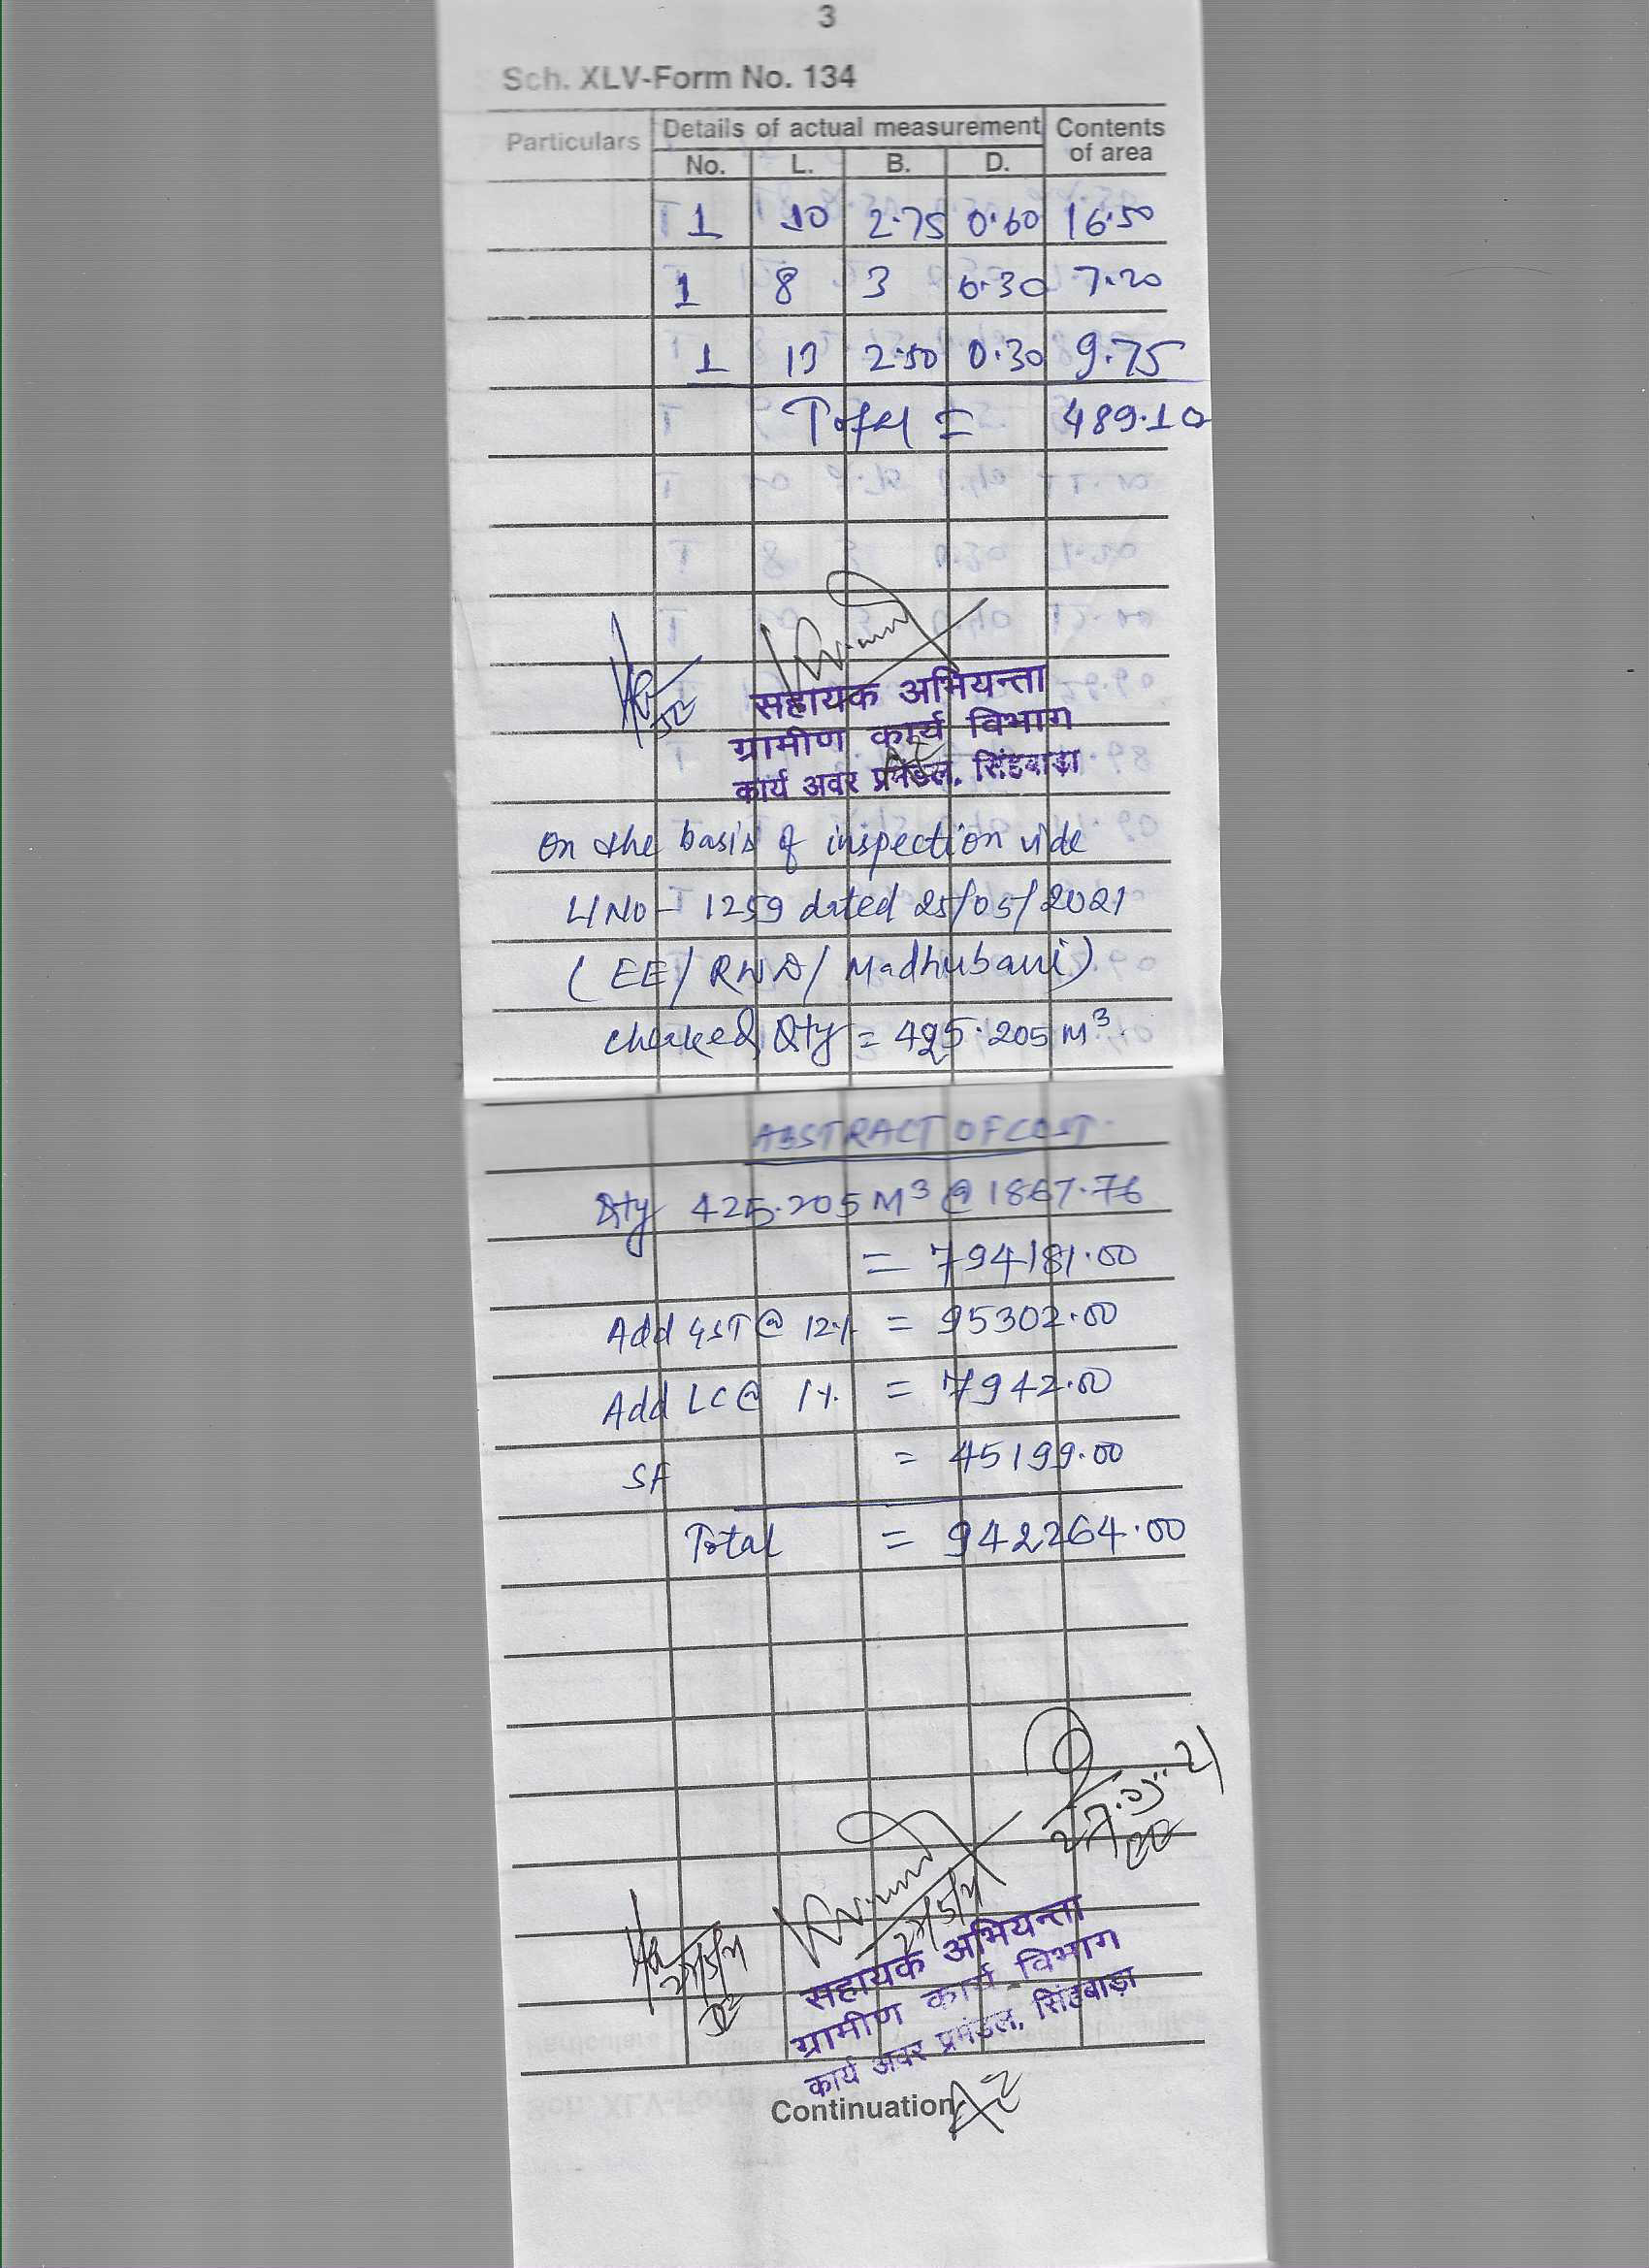 3
Sch. XLV-Form No. 134
Particulars Details of actual measurement Contents of area
No. L. B. D.
1 10 2.75 0.60 16.50
1 8 3 0.30 7.20
1 13 2.50 0.30 9.75
Total = 489.10
सहायक अभियन्ता
ग्रामीण कार्य विभाग
कार्य अवर प्रमंडल, सिंहवाड़ा
On the basis of inspection vide
LNo - 1259 dated 25/05/2021
(EE/RWD/Madhubani)
checked Qty = 425.205 M³.
ABSTRACT OF COST.
Qty 425.205 M³ @ 1867.76
= 794181.00
Add GST @ 12% = 95302.00
Add LC @ 1%. = 7942.00
SF = 45199.00
Total = 942264.00
27.05.21
EE
27/5/21
27/5/21
JE
सहायक अभियन्ता
ग्रामीण कार्य विभाग
कार्य अवर प्रमंडल, सिंहवाड़ा
Continuation